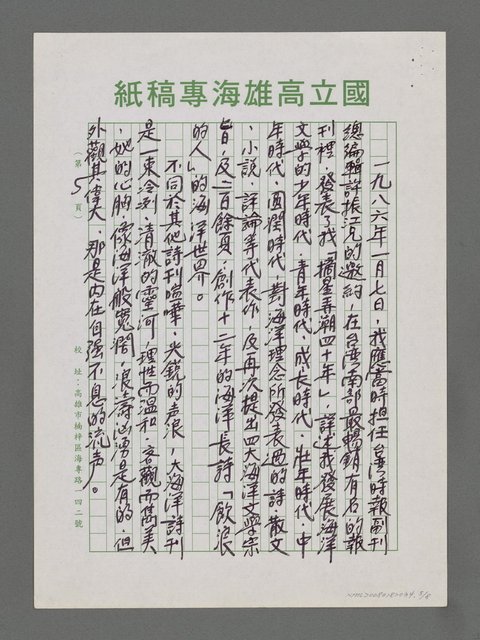 國立高雄海專稿紙
一九八六年一月七日，我應當時担任台湾時報副刊
總編輯許振江兄的邀約，在台湾南部最暢銷有名的報
刊裡，發表了我「摘星弄潮四十年」，詳述我發展海洋
文學的少年時代、青年時代、成長時代、壯年時代、中
年時代、圓潤時代，對海洋理念所發表過的詩、散文
、小說、評論等代表作，及再次提出四大海洋文學宗
旨，及二百餘頁，創作十二年的海洋長詩「飲浪
的人」的海洋世界。
不同於其他詩刊喧嘩、尖銳的声浪，大海洋詩刊
是一束冷冽、清澈的靈河，理性而溫和，客觀而雋美
，她的心胸，像海洋般寬濶，浪濤洶湧是有的，但
外觀其偉大，那是內在自强不息的流声。
（第5頁）
校址：高雄市楠梓區海專路一四二號
NML20080182044. 5/8